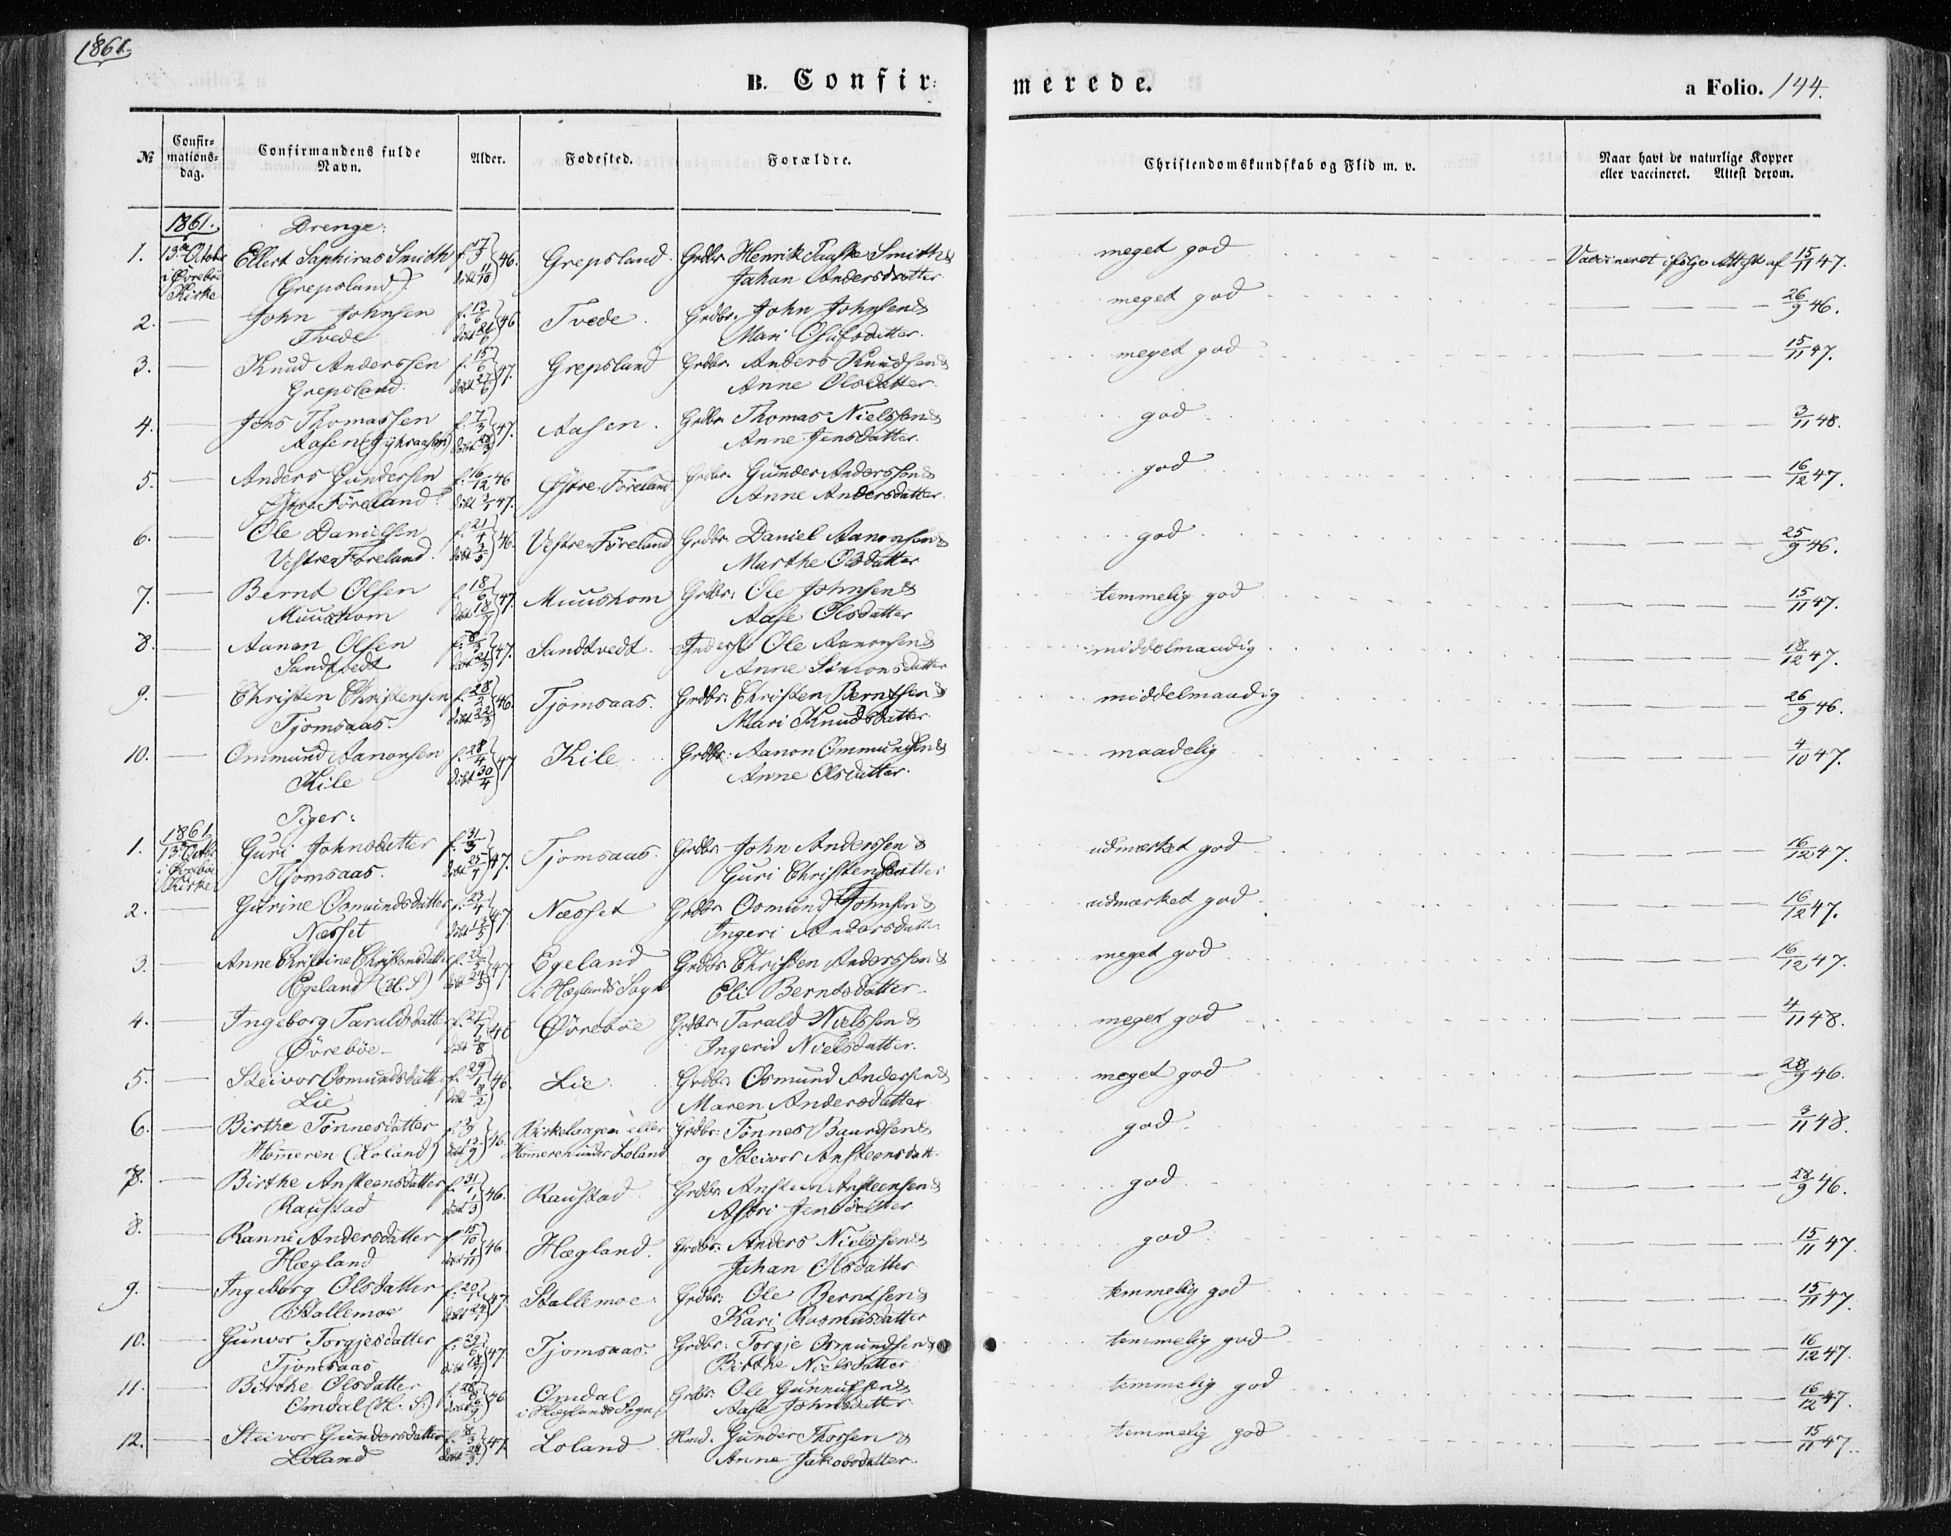 1861.
B. Confirmerede.
a Folio. 144.
№ | Confirmations-dag. | Confirmandens fulde Navn. | Alder. | Fødested. | Forældre. | Christendomskundskab og Flid m. v. | Naar havt de naturlige Kopper eller vaccineret. Attest derom.
1861. Drenge:
1. 13de Octobr i Øvrebøe Kirke | Ellert Saphiras Smidth (Grepsland) | Grepsland | Grdbr. Henrik Smith & Jahan Andersdatter | meget god | Vaccineret ifølge Attest af 15/11 47.
2. — | John Johnsen Tvede | f. 13/6 døbt 21/6 46 | Tvede. | Grdbr. John Johnsen & Mari Olufsdatter. | meget god | — 26/9 46.
3. — | Knud Anderssen Grepsland. | f. 15/6 døbt 27/6 47. | Grepsland | Grdbr. Anders Knudsen & Anne Olsdatter. | meget god | — 15/11 47.
4. — | Jens Thomassen Aasen | f. 7/3 47. | Aasen. | Grdbr. Thomas Nielssen & Anne Jensdatter. | god | — 3/11 48.
5. — | Anders Gundersen Østre Föreland | f. 16/12 46 døbt 3/1 47. | Østre Föreland | Grdbr. Gunder Anderssen & Anne Andersdatter. | god | — 16/12 47.
6. — | Ole Danielsen Vestre Föreland. | f. 21/4 døbt 3/5 46. | Vestre Föreland | Grdbr. Daniel Aanonsen & Marthe Olsdatter | god | — 25/9 46.
7. — | Bernt Olsen Muushom | f. 18/6 døbt 18/7 47. | Muushom | Grdbr. Ole Johnsen & Aase Olsdatter | temmelig god | — 15/11 47.
8. — | Aanon Olsen Sandtvedt | døbt 21/3 47. | Sandtvedt. | Inderst Ole Aanonsen & Anne Simonsdatter | middelmaadig | — 18/12 47.
9. — | Christen Christensen Tjomsaas. | f. 28/2 døbt 22/3 46. | Tjomsaas. | Grdbr. Christen Berntsen & Mari Knudsdatter. | middelmaadig | — 26/9 46.
10. — | Ommund Aanonsen Kile | f. 28/4 døbt 30/4 47 | Kile. | Grdbr. Aanon Ommundsen & Anne Olsdatter. | maadelig | — 4/10 47.
Piger:
1. 1861 13de Octbr i Øvrebøe Kirke | Guri Johnsdatter Tjomsaas. | f. 31/3 døbt 25/4 47. | Tjomsaas. | Grdbr. John Anderssen & Guri Christensdatter | udmærket god | — 16/12 47.
2. — | Gurine Osmundsdatter Næsset | 47. | Næsset | Grdbr. Osmund Johnsen & Ingeri Andersdatter | udmærket god | — 16/12 47.
3. — | Anne Christine Christensdatter Egeland (H. S) | døbt 24/5 47 | Egeland i Hæglands Sogn | Grdbr. Christen Anderssen & Eli Berntsdatter. | meget god | — 16/12 47.
4. — | Ingeborg Taraldsdatt. Øvrebøe. | 46 | Øvrebøe | Grdbr. Tarald Nielssen & Ingerid Nielsdatter. | meget god | — 4/11 48.
5. — | Steivor Osmundsdatt. Lie | f. 29/1 46 | Lie. | Grdbr. Osmund Andersen & Maren Andersdatter. | meget god | — 28/9 46.
6. — | Birthe Tönnesdatter Homeren (Loland) | 46. | Kirkelaagen eller Homeren under Loland | Grdbr. Tönnes Baardsen & og Steivor Ansteensdatt. | god | — 3/11 48.
7. — | Birthe Ansteensdatter Raustad | f. 31/1 døbt 1/3 46. | Raustad | Grdbr. Ansteen Ansteensen & Astri Jensdatter. | god | — 28/9 46.
8. | Ranni Andersdatter Hægland | f. 15/10 døbt 1/11 46 | Hægland. | Grdbr. Anders Nielssen & Jahan Olsdatter | god | — 15/11 47.
9. — | Ingeborg Olsdatter Stallemoe | f. 20/1 47 | Stallemoe. | Grdbr. Ole Berntsen & Kari Rasmusdatter | temmelig god | — 15/11 47.
10. — | Gunvor Torgjesdatter Tjomsaas | 47 | Tjomsaas. | Grdbr. Torgje Osmundsen & Birthe Nielsdatter. | temmelig god | — 16/12 47.
11. — | Birthe Olsdatter Omdal (H. S.) | 46 | Omdal i Hæglands Sogn | Grdbr. Ole Gunnufsen & Aase Johnsdatter. | temmelig god | — 16/12 47.
12. — | Steivor Gundersdatter Loland | 47. | Loland. | Hmd. Gunder Thorsen & Anne Jakobsdatter. | temmelig god | — 15/11 47.